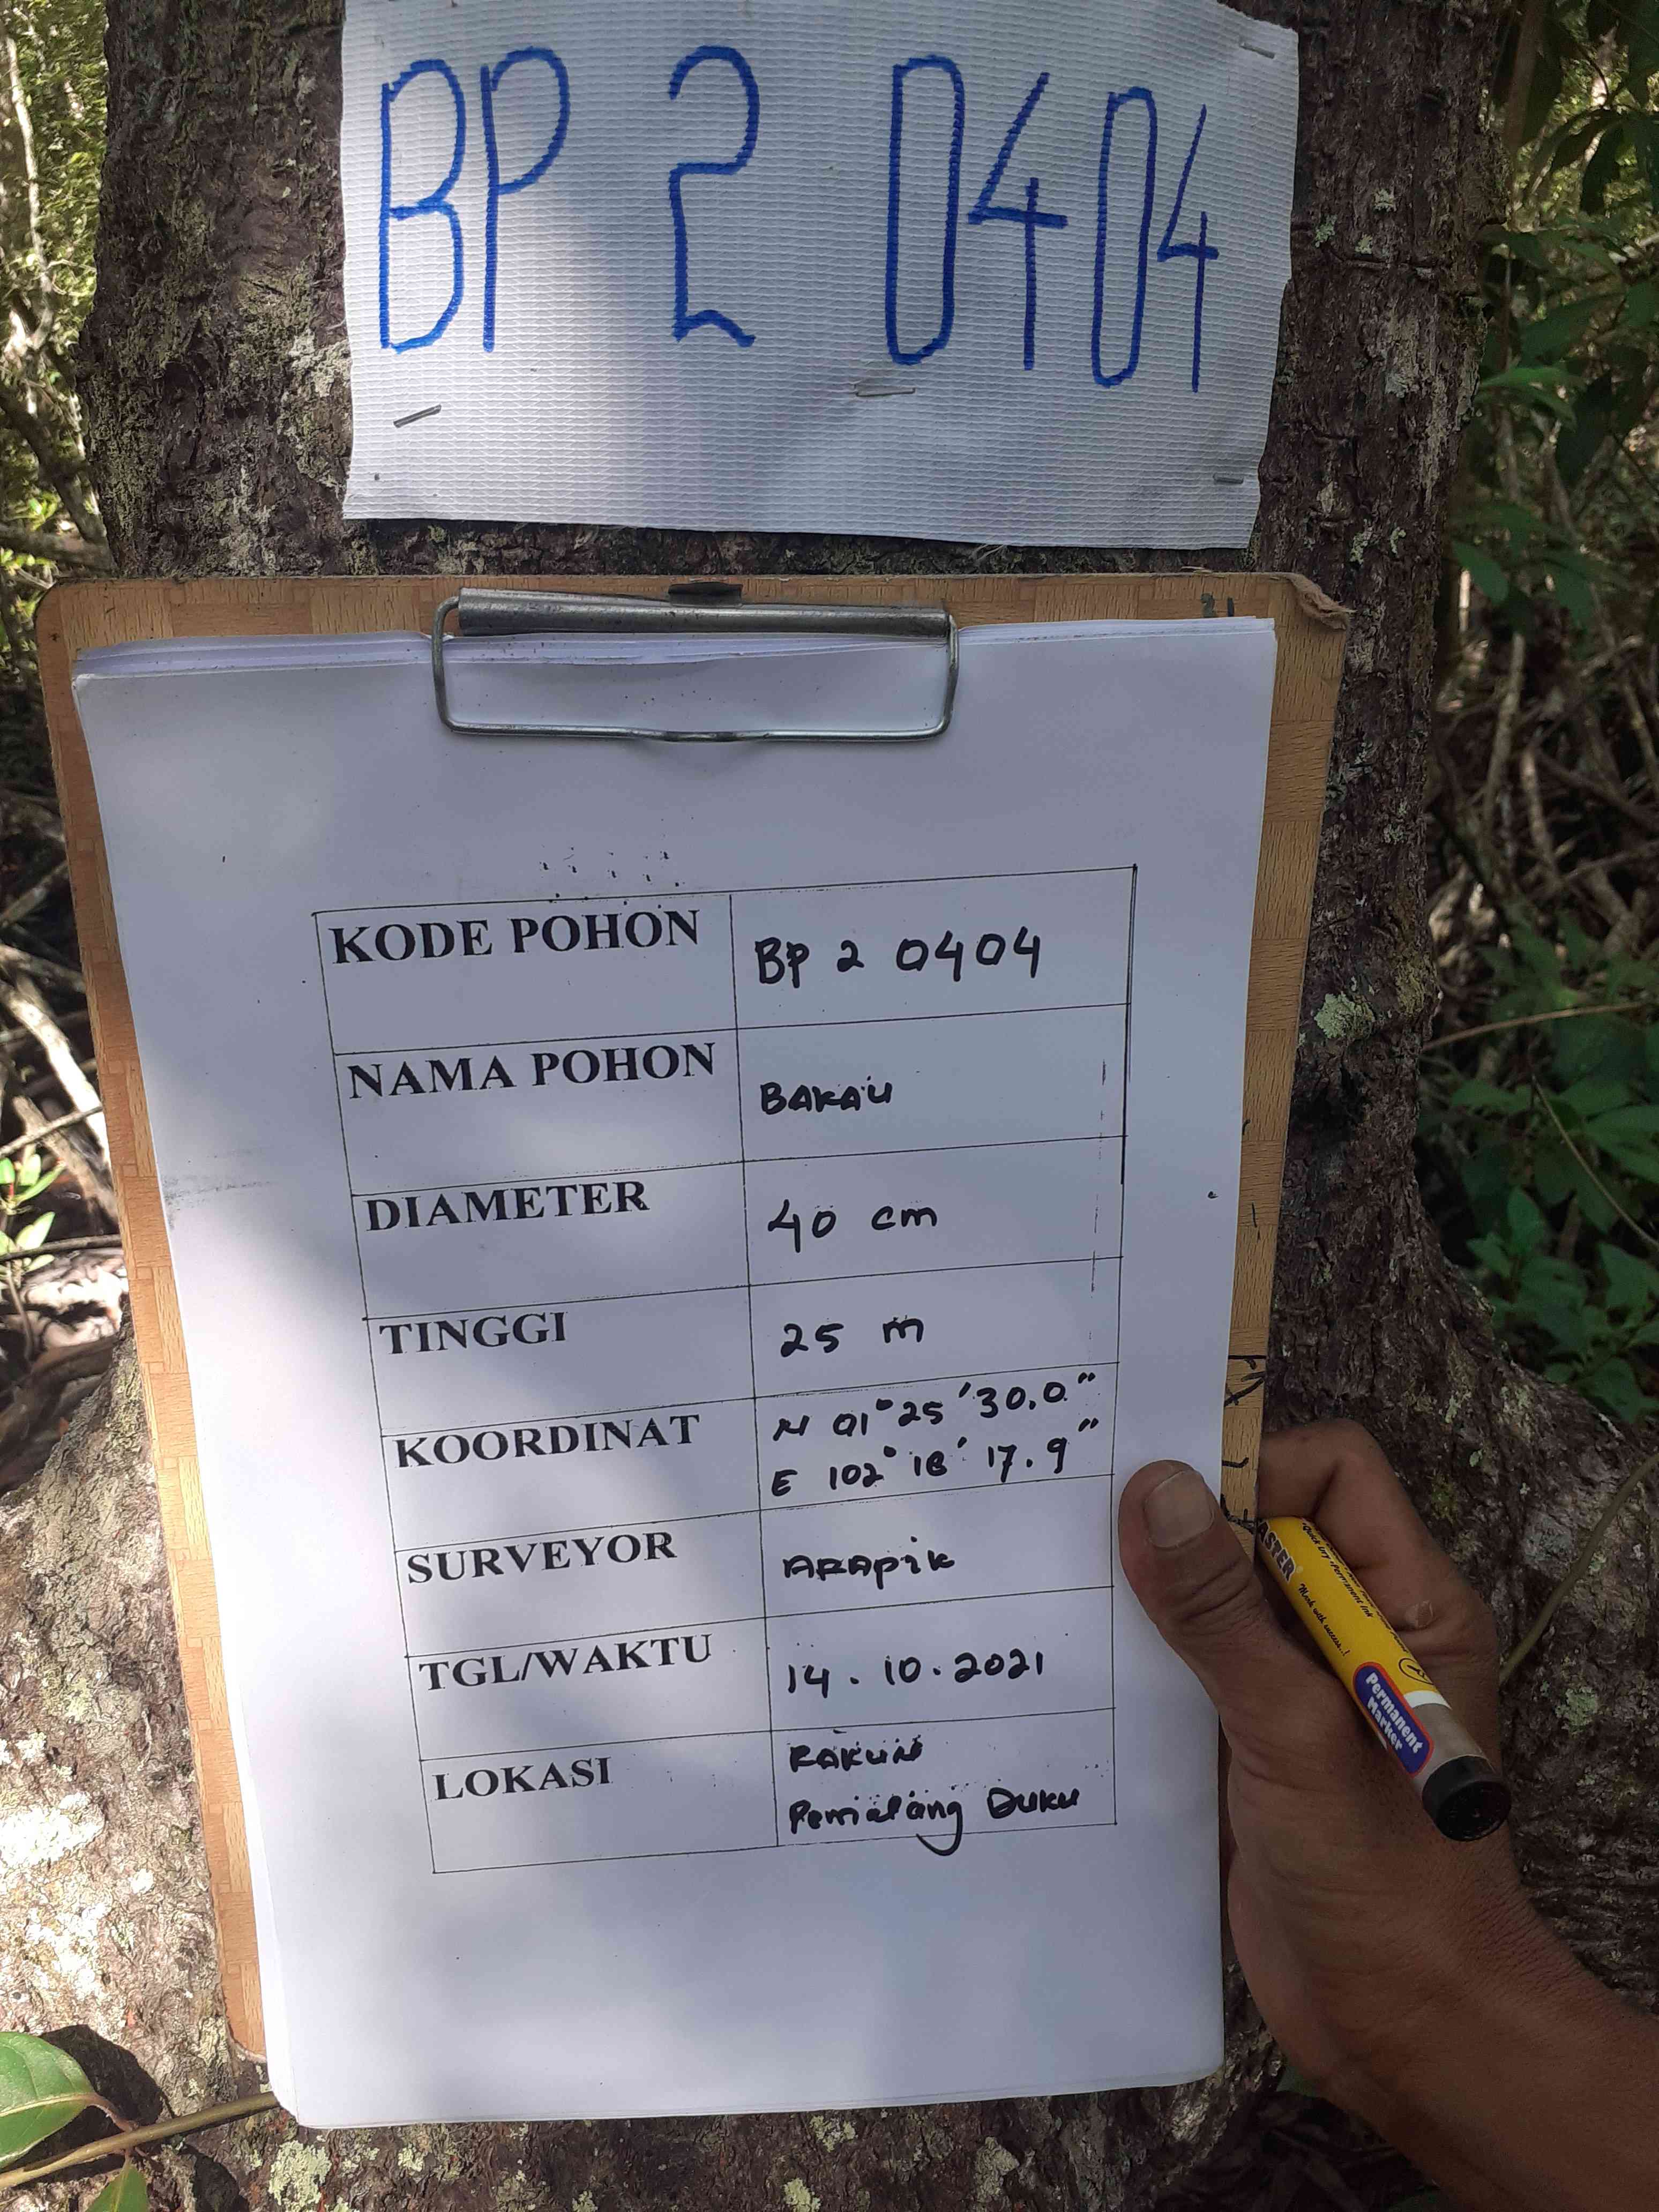 BP 2 0404
KODE POHON BP 2 0404
NAMA POHON BAKAU
DIAMETER 40 cm
TINGGI 25 m
KOORDINAT N 01° 25' 30.0"
E 102° 18' 17.9"
SURVEYOR ARAPIK
TGL/WAKTU 14.10.2021
LOKASI RAKUN
Duku
Permanent
Marker